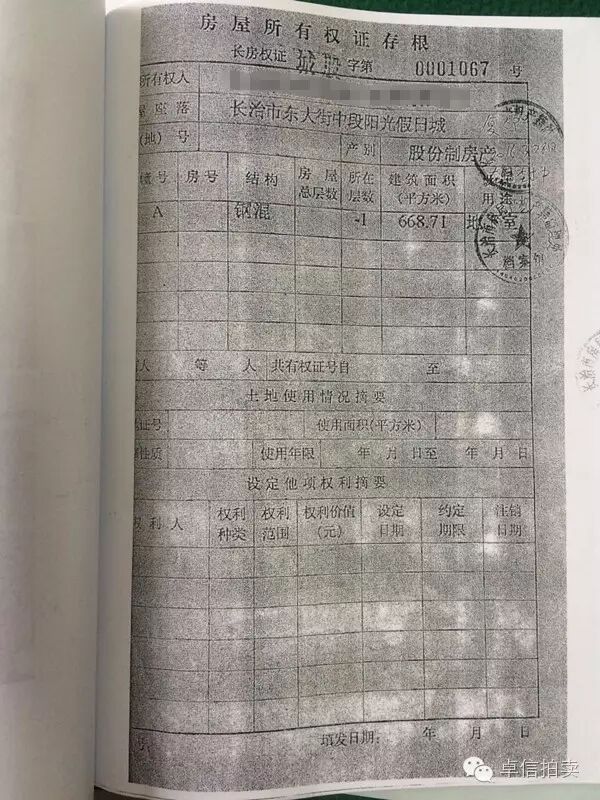 房屋所有权证存根
长房权证 城股 字第 0001067 号
所有权人
屋座落 长治市东大街中段阳光假日城
(地) 号 产别 股份制房产
号 房号 结构 房屋总层数 所在层数 建筑面积(平方米) 用途
A 钢混 -1 668.71 地 室
人 等 人 共有权证号自 至
土地使用情况摘要
证号 使用面积(平方米)
性质 使用年限 年 月 日至 年 月 日
设定他项权利摘要
权利人 权利种类 权利范围 权利价值(元) 设定日期 约定期限 注销日期
号 填发日期: 年 月 日
卓信拍卖